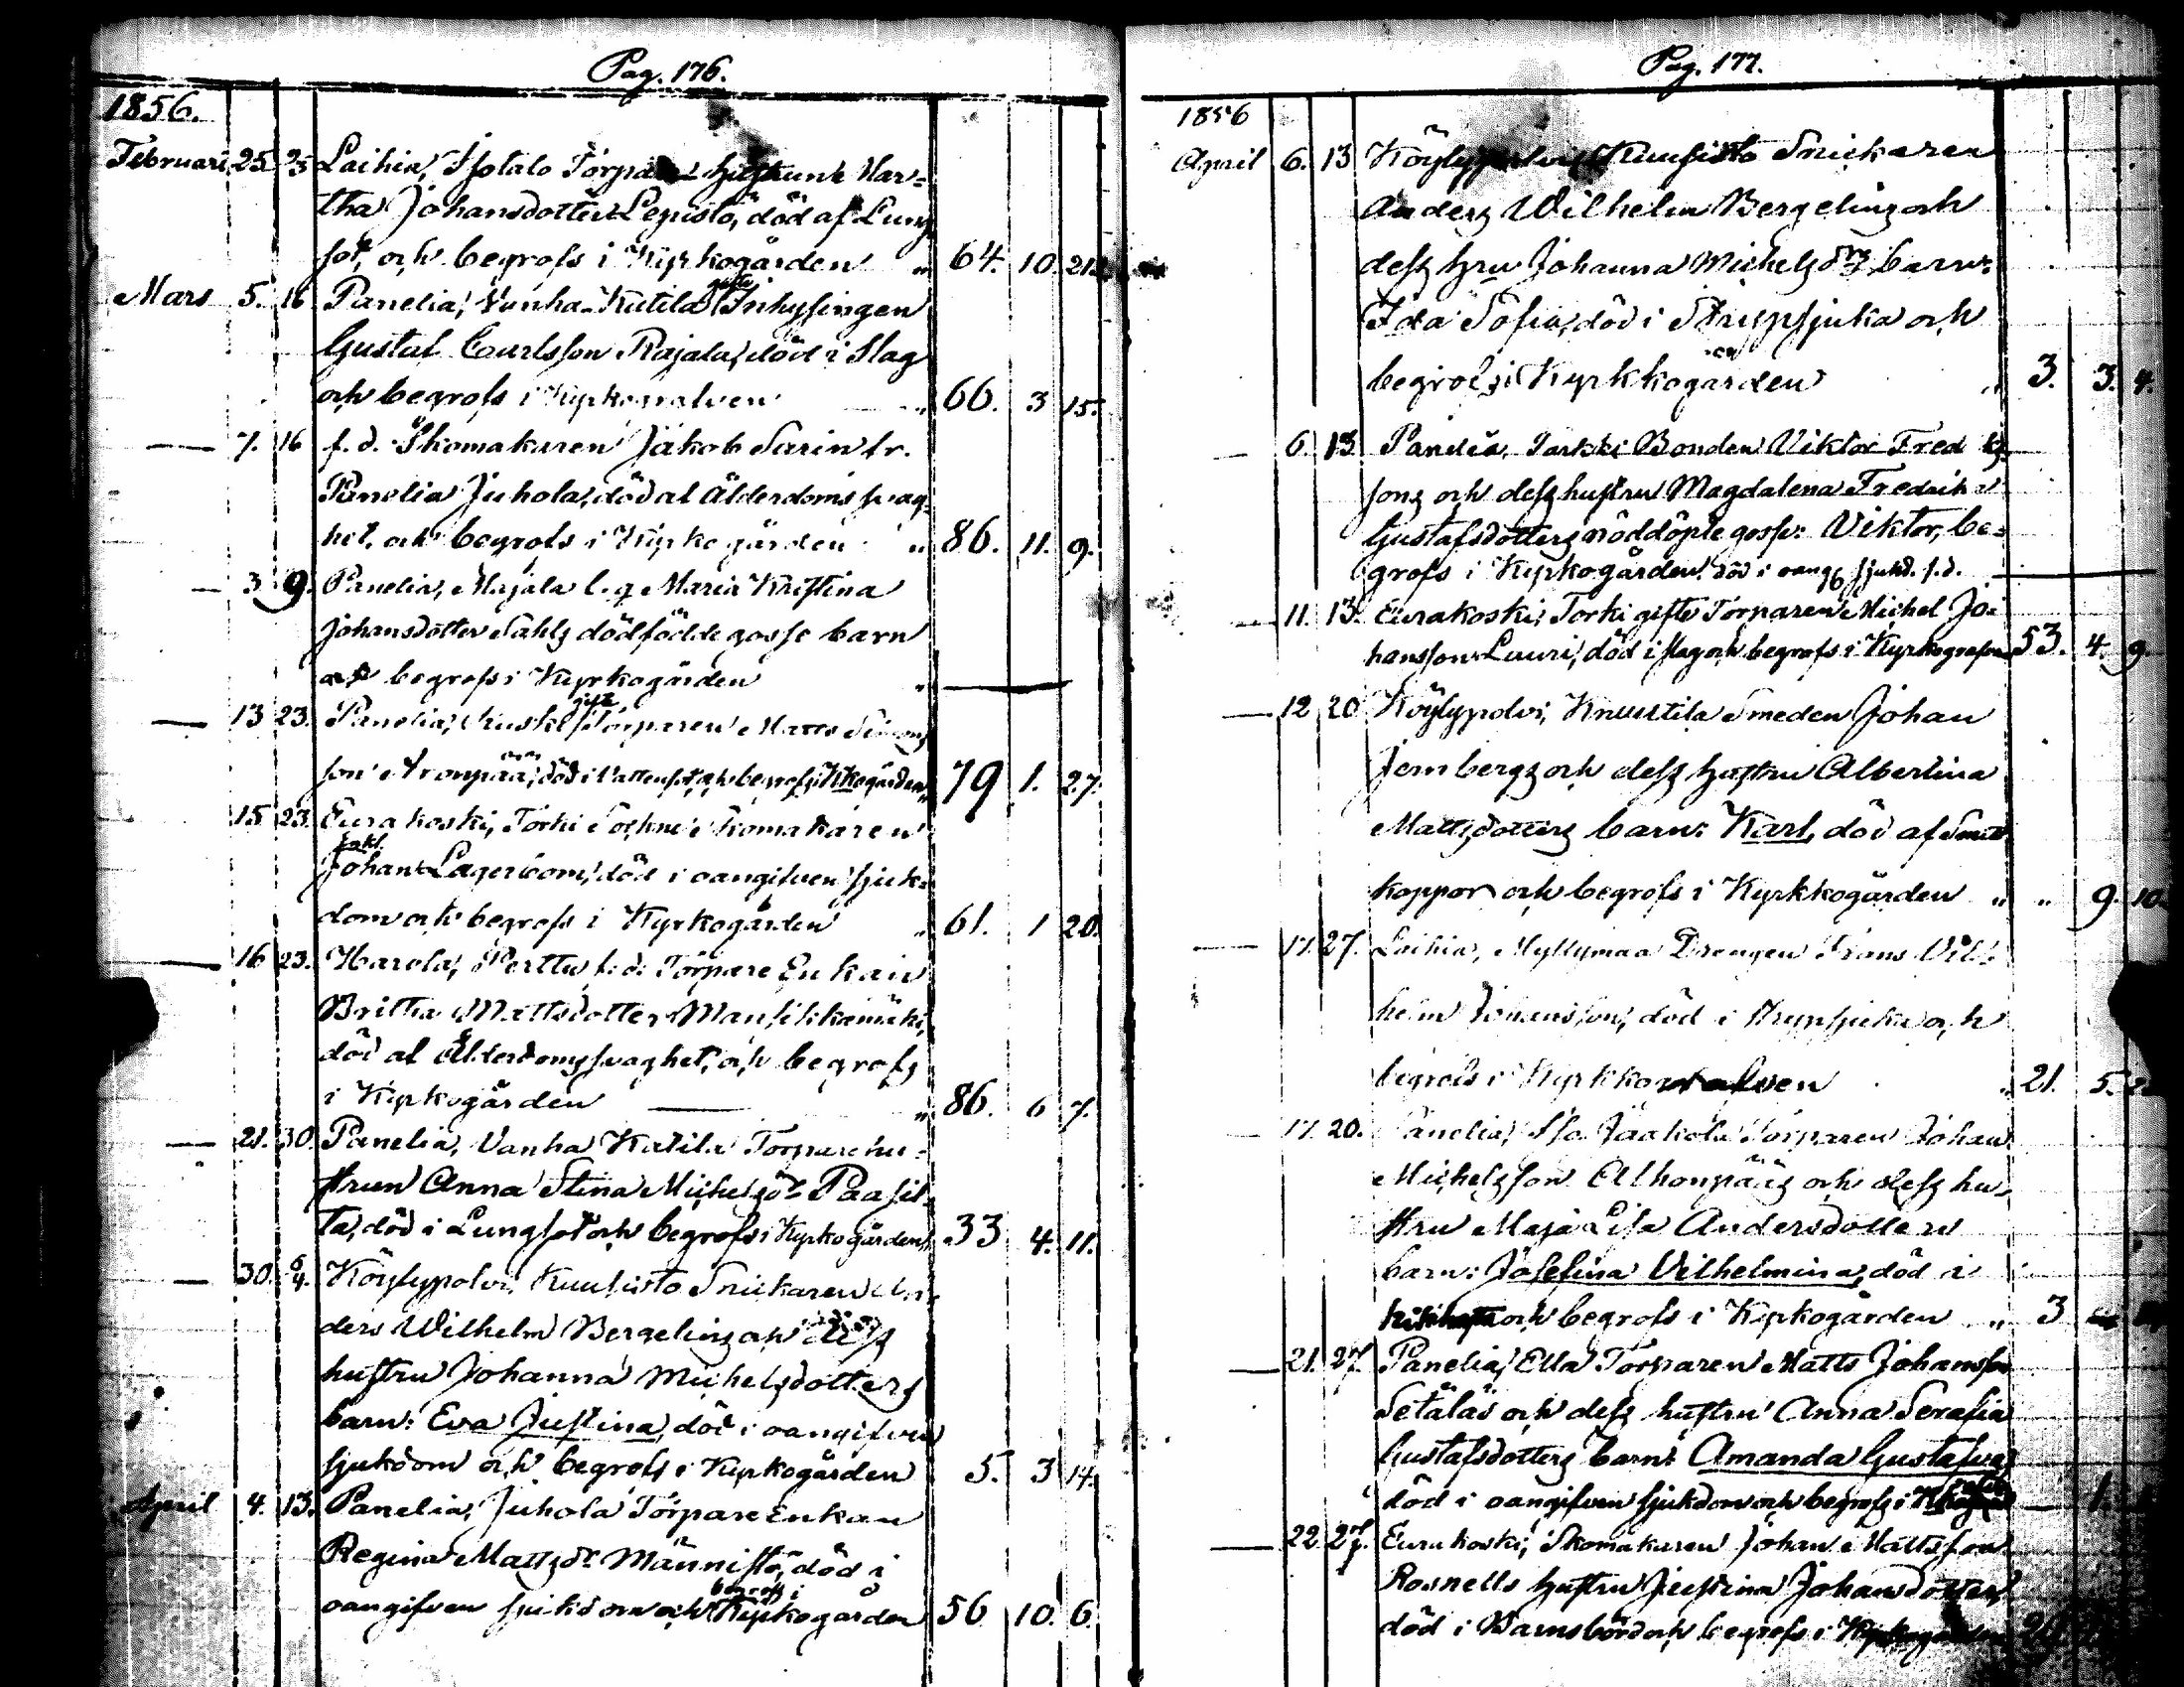 Pag. 176.
1856.
Februari 25 25 Laihia, Isotalo Torpare hustrun Mar-
tha Johansdotter Lepistö, död af Lung
sot, och begrofs i Kyrkogården " 64. 10. 21.
Mars 5. 16 Panelia, Vanha-Kutila gifte Inhysingen
Gustaf Carlsson Rajala, död i Slag
och begrofs i Kyrkografven " 66. 3 15.
— 7. 16 f. d. Skomakaren Jakob Sarin fr.
Panelia Juhola, död af Ålderdoms svag-
het, och begrofs i Kyrkogården " 86. 11. 9.
— 3 9. Panelia, Majala l. q. Maria Kristina
Johansdotter Sahls dödfödde gosse barn
och begrofs i Kyrkogården " —
— 13 23. Panelia, gifte Torparen Matts Simons
son Aronpää, död i Vattensot, och begrofs i Kkogården " 79 1. 27.
15 23. Eurakoski, Torki Sockne skomakaren
enkl.
Johan Lagerbom, död i oangifven sjuk-
dom och begrofs i Kyrkogården " 61. 1 20.
— 16 23. Harola, Perttu f. d. Torpare Enkan
Britha Mattsdotter Mansikkamäki,
död af Ålderdoms svaghet, och begrofs
i Kyrkogården — " 86. 6 7.
— 21. 30. Panelia, Vanha Kutila Torpare hu-
strun Anna Stina Michelsdr Paasil-
ta, död i Lungsot och begrofs i Kyrkogården " 33 4. 11.
— 30. 6/4. Köylypolvi, Kuusisto Snickaren An-
ders Wilhelm Bergelins och dess
hustru Johanna Michelsdotters
barn: Eva Justina, död i oangifven
sjukdom och begrofs i Kyrkogården 5. 3 14.
April 4. 13. Panelia, Juhola Torpare Enkan
Regina Mattsdr Männistö, död i
oangifven sjukdom och begrofs i Kyrkogården 56 10. 6.
Pag. 177.
1856
April 6. 13 Köylypolvi Kuusisto Snickaren
Anders Wilhelm Bergelins och
dess hru Johanna Michelsdrs barn:
Ida Sofia, död i Strypsjuka och
begrofs i Kyrkkogården " 3. 3. 4.
— 6. 13 Panelia, Bonden Viktor Fredriks
sons och dess hustru Magdalena Fredrika
Gustafsdotters nöddöpte gosse: Viktor, be-
grofs i Kyrkogården. död i oangg sjukd. s. d. —
— 11. 13. Eurakoski, Torki gifte Torparen Michel Jo-
hansson Lauri, död i slag och begrofs i Kyrkografven 53. 4. 9.
— 12 20 Köylypolvi, Knuutila Smeden Johan
Jernbergs och dess hustru Albertina
Mattsdotters barn: Karl, död af Smitt
koppor och begrofs i Kyrkkogården " " 9. 10.
— 17. 27. Laihia, Myllymaa Drengen Frans Vil-
helm Johansson, död i Strypsjuka och
begrofs i Kyrkkografven " 21. 5.
— 17. 20. Panelia, Iso Jaakola Torparen Johan
Michelsson Alhonpääs och dess hu-
stru Maja Lisa Andersdotters
barn: Josefina Vilhelmina, död i
kikhosta och begrofs i Kyrkogården " 3
— 21. 27. Panelia, Ella Torparen Matts Johansson
Setäläs och dess hustru Anna Serafia
Gustafsdotters barn: Amanda Gustafva,
död i oangifven sjukdom och begrofs i — 1.
— 22. 27. Eurakoski, Skomakaren Johan Mattsson
Rosnells hustru Justina Johansdotter,
död i Barnsbörd och begrofs i Kyrkogården